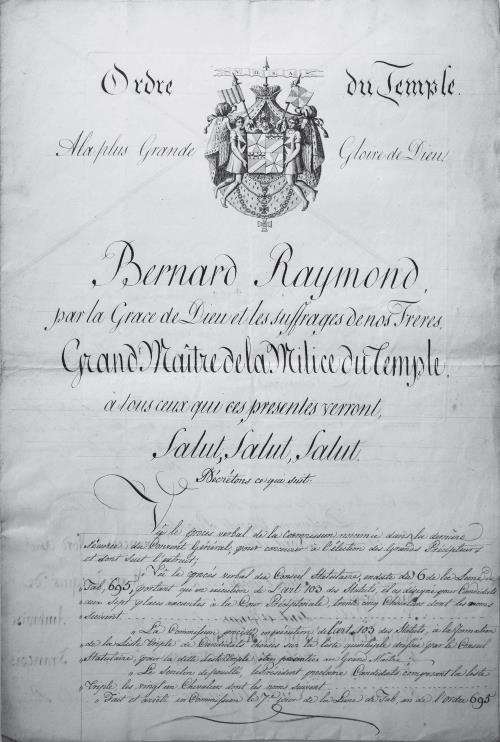 Ordre du Temple.
A la plus Grande Gloire de Dieu,
Bernard Raymond,
par la Grace de Dieu et les suffrages de nos Freres,
Grand Maître de la Milice du Temple.
à tous ceux qui ces présentes verront,
Salut, Salut, Salut.
Décrétons ce qui suit:
Vu le procès verbal de la Commission nommée dans la dernière
Séance du Couvent Général, pour concourir à l'élection des Grands Précepteurs
et dont suit l'extrait;
" Vu le procès verbal du Conseil Statutaire, en date du 6 de la Lune de
" Tab, 695, portant qu'en exécution de l'art. 103 des Statuts, il a désigné pour Candidats
" aux Sept places vacantes à la Cour Préceptoriale, Chevaliers dont les noms
" suivent
" La Commission procède en exécution de l'art. 103 des Statuts, à la formation
" de la Liste Triple de Candidats choisis sur la liste quintuple dressée par le Conseil
" Statutaire, pour la dite Liste triple être présentée au Grand Maître
" Le Scrutin dépouillé, le Président proclame Candidats composant la liste
" Triple les vingt un Chevaliers dont les noms suivent
" Fait et arrêté en Commission le 7e jour de la Lune de Tab, an de l'ordre 695